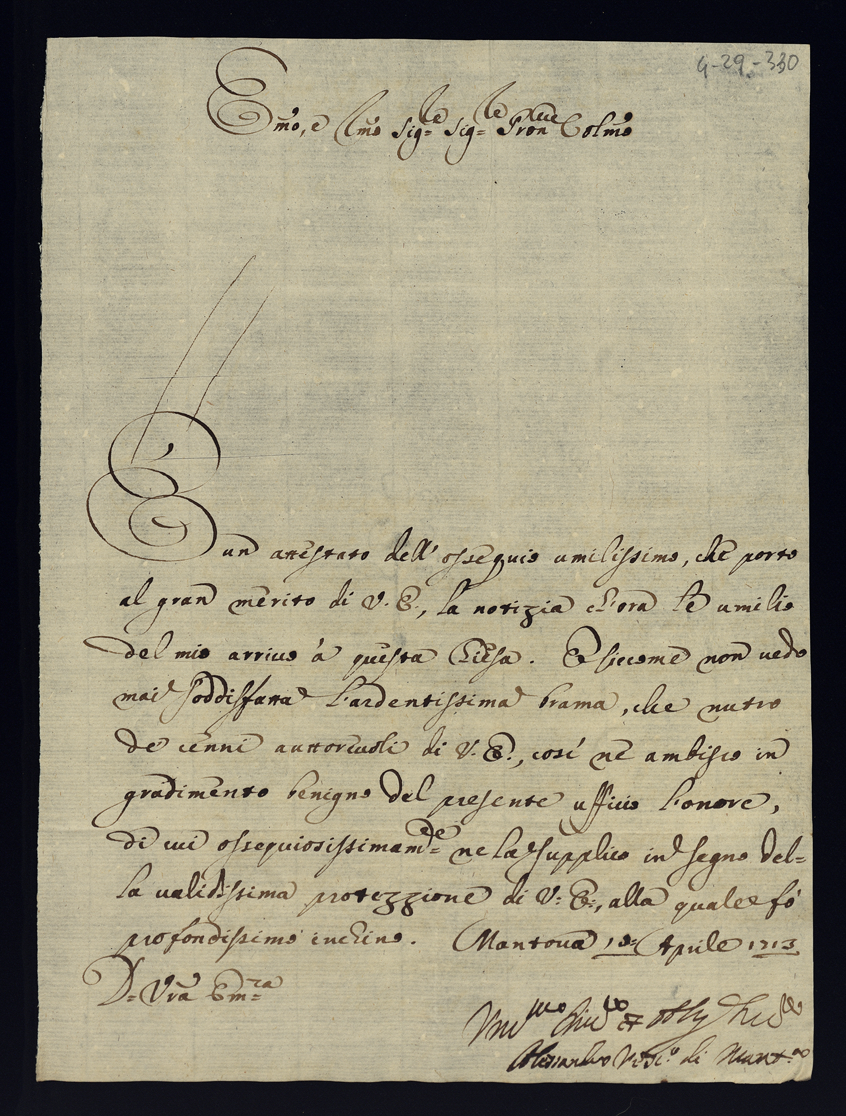 G-29-330
Emo, e Rmo Sig.re Sig.re Pron Colmo
È un attestato dell'ossequio umilissimo, che porto
al gran merito di V. E., la notizia ch'ora le umilio
del mio arrivo à questa Chiesa. E siccome non vedo
mai soddisfatta l'ardentissima brama, che nutro
de cenni auttorevoli di V. E., così ne ambisco in
gradimento benigno del presente ufficio l'onore,
di cui ossequiosissimam.te ne la supplico in segno del=
la validissima protezzione di V. E., alla quale fò
profondissimo inchino. Mantova Aprile 1713
D. Vra Em.za
Alessandro Vesc.o di Mant.a